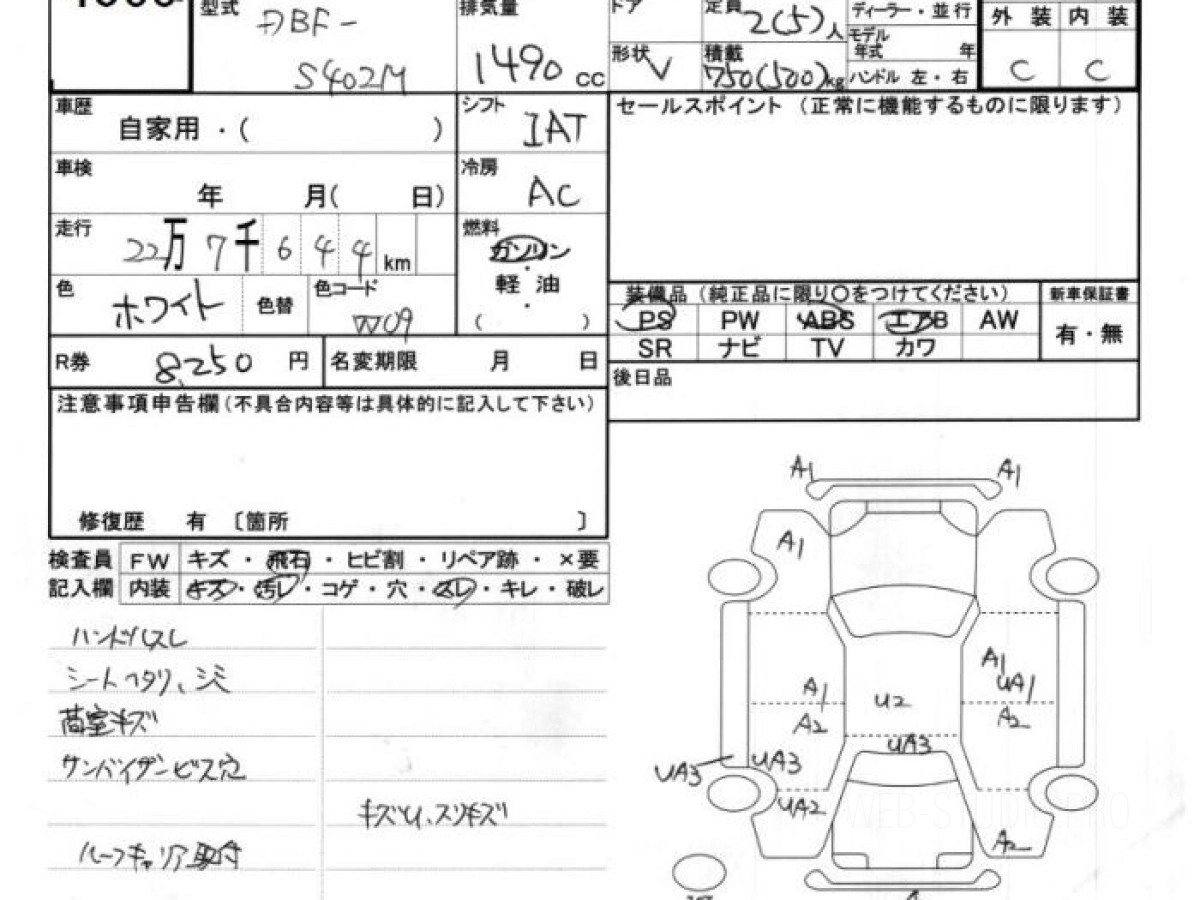 型式 DBF-
S402M
排気量 1490 cc
ドア
形状 V
定員 2(5)人
積載 750(500)kg
ディーラー・並行
モデル年式 年
ハンドル 左・右
外装 内装
C C
車歴 自家用・( )
シフト IAT
セールスポイント (正常に機能するものに限ります)
車検 年 月( 日)
冷房 AC
走行 22万7千644km
燃料 ガソリン
・
軽油
・
( )
色 ホワイト 色替 色コード W09
装備品(純正品に限り○をつけてください) 新車保証書
PS PW ABS エアB AW 有・無
SR ナビ TV カワ
R券 8,250 円 名変期限 月 日
後日品
注意事項申告欄(不具合内容等は具体的に記入して下さい)
修復歴 有 〔箇所 〕
検査員 FW キズ・飛石・ヒビ割・リペア跡・×要
記入欄 内装 キズ・汚レ・コゲ・穴・スレ・キレ・破レ
ハンドルスレ
シートヘタリ、シミ
荷室キズ
サンバイザービス穴
キズ凹、スリキズ
ルーフキャリア取付
A1 A1
A1
A1
A1 UA1
U2
A2 A2
UA3
UA3 UA3
UA2
A2
WEB-STUDIO PRO